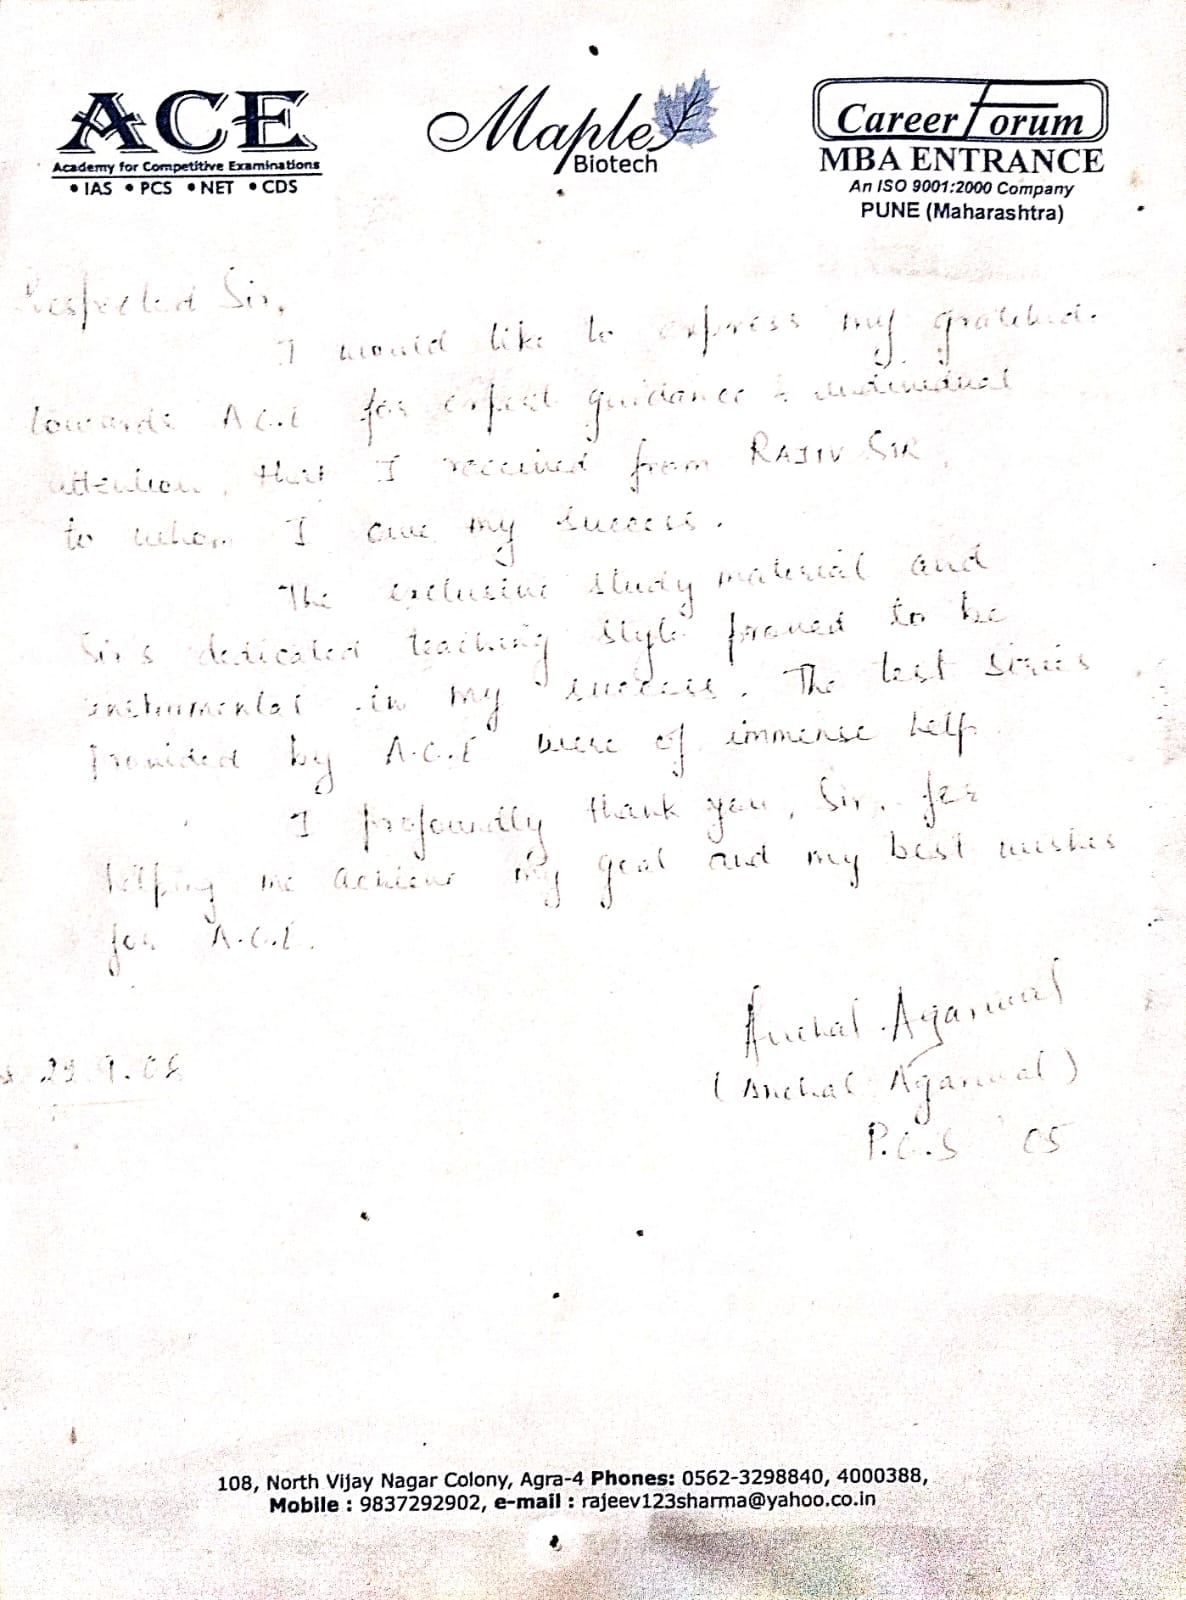 ACE
Academy for Competitive Examinations
• IAS • PCS • NET • CDS
Maple
Biotech
Career Forum
MBA ENTRANCE
An ISO 9001:2000 Company
PUNE (Maharashtra)
Respected Sir,
I would like to express my gratitud.
towards A.C.E for expert guidance & individual
attention, that I received from RAJIV SIR,
to whom I owe my success.
The exclusive study material and
Sir's dedicated teaching style proved to be
instrumental in my success. The test series
provided by A.C.E were of immense help.
I profoundly thank you, Sir, for
helping me achieve my goal and my best wishes
for A.C.E.
Anchal Agarwal
(Anchal Agarwal)
P.C.S 05
9.08
108, North Vijay Nagar Colony, Agra-4 Phones: 0562-3298840, 4000388,
Mobile : 9837292902, e-mail : rajeev123sharma@yahoo.co.in